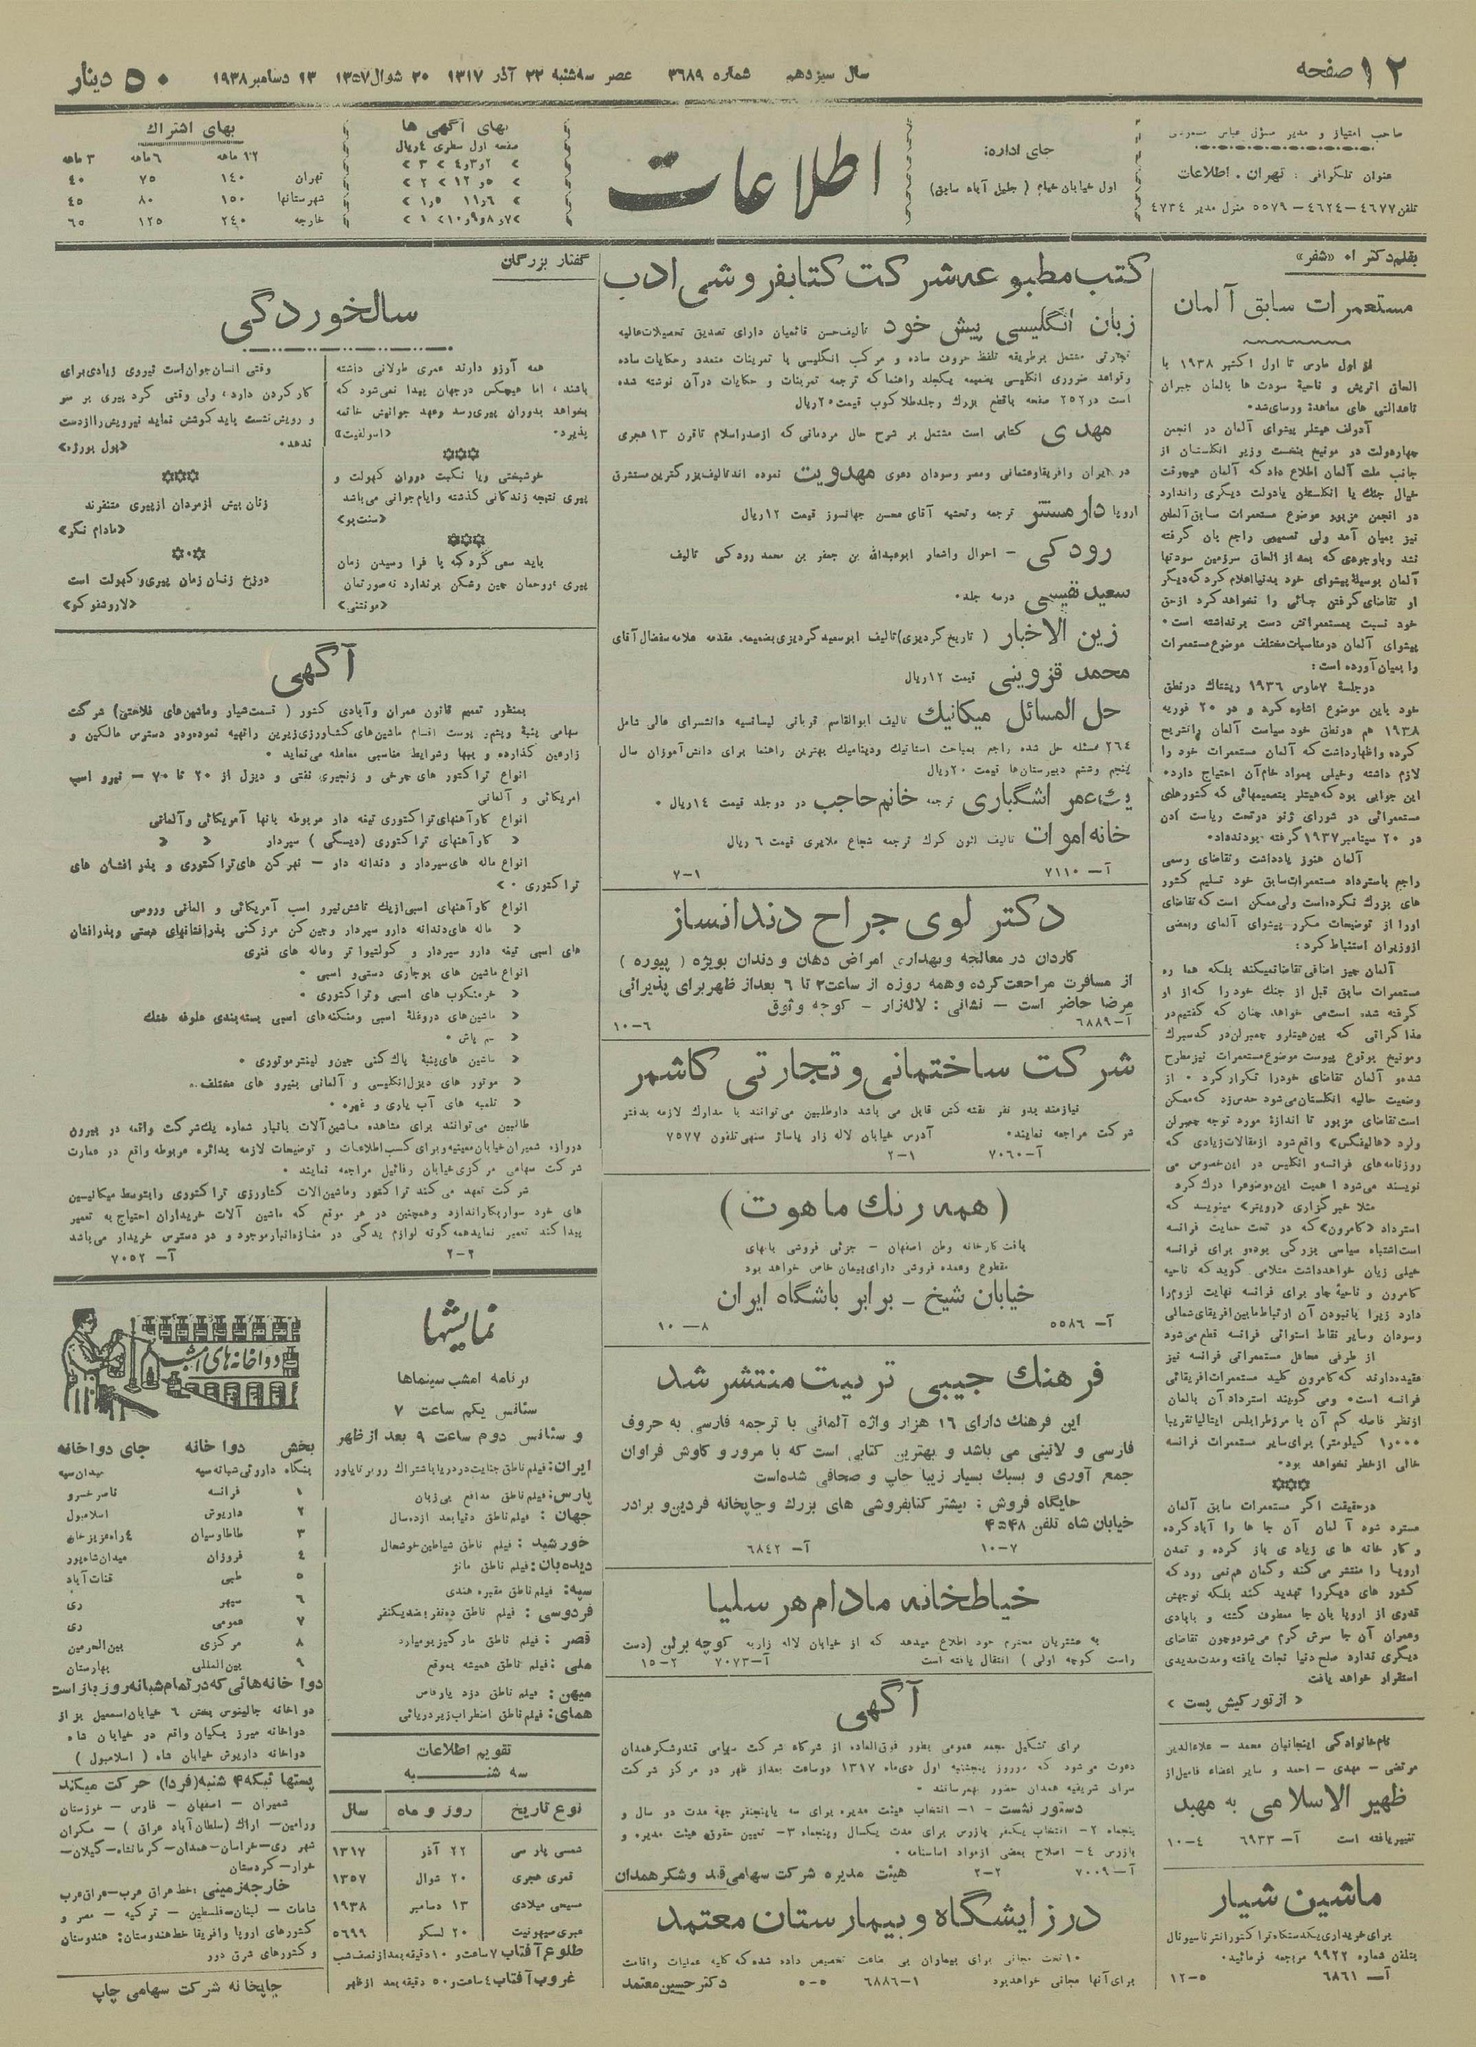 ۱۲ صفحه
سال سیزدهم شماره ۳۶۸۹ عصر سه‌شنبه ۲۲ آذر ۱۳۱۷ ۲۰ شوال ۱۳۵۷ ۱۳ دسامبر ۱۹۳۸
۵۰ دینار
صاحب امتیاز و مدیر مسؤل عباس مسعودی
عنوان تلگرافی: تهران. اطلاعات
تلفن ۴۶۷۷-۴۶۲۴-۵۵۷۹ منزل مدیر ۴۷۳۴
جای اداره:
اول خیابان خیام (جلیل آباد سابق)
اطلاعات
بهای آگهی ها
صفحه اول سطری ۴ ریال
« ۲و۳و۴ » ۳ »
« ۵و ۱۲ » ۲ »
« ۶و۱۱ ۱٫۵ »
« ۷و۸و۹و۱۰ » ۱ »
بهای اشتراك
۱۲ ماهه ۶ماهه ۳ ماهه
تهران ۱۴۰ ۷۵ ۴۰
شهرستانها ۱۵۰ ۸۰ ۴۵
خارجه ۲۴۰ ۱۲۵ ۶۵
بقلم دکتر ا. «شفر»
مستعمرات سابق آلمان
از اول مارس تا اول اکتبر ۱۹۳۸ با
الحاق اتریش و ناحیهٔ سودت ها بالمان جبران
ناعدالتی های معاهدهٔ ورسای شد.
آدولف هیتلر پیشوای آلمان در انجمن
چهاردولت در مونیخ بنخست وزیر انگلستان از
جانب ملت آلمان اطلاع داد که آلمان هیچوقت
خیال جنك با انگلستان یا دولت دیگری را ندارد
در انجمن مزبور موضوع مستعمرات سابق آلمان
نیز بمیان آمد ولی تصمیمی راجع بان گرفته
نشد و باوجودی که بعد از الحاق سرزمین سودتها
آلمان بوسیلهٔ پیشوای خود بدنیا اعلام کرد که دیگر
او تقاضای گرفتن جائی را نخواهد کرد از حق
خود نسبت بمستعمراتش دست برنداشته است.
پیشوای آلمان در مناسبات مختلف موضوع مستعمرات
را بمیان آورده است:
در جلسهٔ ۷ مارس ۱۹۳۶ ریشتاك در نطق
خود باین موضوع اشاره کرد و در ۲۰ فوریه
۱۹۳۸ هم در نطق خود سیاست آلمان را تشریح
کرده و اظهار داشت که آلمان مستعمرات خود را
لازم داشته و خیلی بمواد خام آن احتیاج دارد.
این جوابی بود که هیتلر بتصمیمهائی که کشورهای
مستعمراتی در شورای ژنو در تحت ریاست ادن
در ۲۰ سپتامبر ۱۹۳۷ گرفته بودند داد.
آلمان هنوز یادداشت و تقاضای رسمی
راجع باسترداد مستعمرات سابق خود تسلیم کشور
های بزرگ نکرده است ولی ممکن است که تقاضای
او را از توضیحات مکرر پیشوای آلمان و بعضی
از وزیران استنباط کرد:
آلمان چیز اضافی تقاضا نمیکند بلکه همان
مستعمرات سابق قبل از جنك خود را که از او
گرفته شده است می خواهد چنان که گفتیم در
مذاکراتی که بین هیتلر و چمبرلن در گدسبرك
و مونیخ بوقوع پیوست موضوع مستعمرات نیز مطرح
شده و آلمان تقاضای خود را تکرار کرد. از
وضعیت حالیه انگلستان می‌شود حدس زد که ممکن
است تقاضای مزبور تا اندازهٔ مورد توجه چمبرلن
ولرد «هالیفاکس» واقع شود از مقالات زیادی که
روزنامه‌های فرانسه و انگلیس در این خصوص می
نویسند می‌شود اهمیت این موضوع را درك کرد
مثلا خبر گزاری «رویتر» مینویسد که
استرداد «کامرون» که در تحت حمایت فرانسه
است اشتباه سیاسی بزرگی بوده و برای فرانسه
خیلی زیان خواهد داشت مثلا می گوید که ناحیه
کامرون و ناحیهٔ چاد برای فرانسه نهایت لزوم را
دارد زیرا با نبودن آن ارتباط مابین افریقای شمالی
و سودان و سایر نقاط استوائی فرانسه قطع می‌شود
از طرفی محافل مستعمراتی فرانسه نیز
عقیده دارند که کامرون کلید مستعمرات افریقائی
فرانسه است. و می گویند استرداد آن بالمان
از نظر فاصله کم آن با مرز طرابلس ایتالیا تقریبا
۱٫۰۰۰ کیلومتر) برای سایر مستعمرات فرانسه
خالی از خطر نخواهد بود.
✡✡✡
در حقیقت اگر مستعمرات سابق آلمان
مسترد شود آلمان آن جا ها را آباد کرده
و کار خانه های زیادی باز کرده و تمدن
اروپا را منتشر می کند و گمان هم نمی رود که
کشور های دیگر را تهدید کند بلکه توجهش
قدری از اروپا بان جا معطوف گشته و بابادی
وعمران آن جا سرش گرم می‌شود و چون تقاضای
دیگری ندارد صلح دنیا نجات یافته و مدت مدیدی
استقرار خواهد یافت
« از تورکیش پست »
نام خانوادگی اینجانبان محمد - علاءالدین
مرتضی - مهدی - احمد و سایر اعضاء فامیل از
ظهیر الاسلامی به مهبد
تغییر یافته است آ- ۶۹۳۳ ۴-۱۰
ماشین شیار
برای خریداری یکدستگاه تراکتور انترناسیونال
بتلفن شماره ۹۹۲۲ مراجعه فرمائید.
آ- ۶۸۶۱ ۵-۱۲
کتب مطبوعه شرکت کتابفروشی ادب
زبان انگلیسی پیش خود تألیف حسن قائمیان دارای تصدیق تحصیلات عالیه
تجارتی مشتمل بر طریقه تلفظ حروف ساده و مرکب انگلیسی با تمرینات متعدد و حکایات ساده
و قواعد ضروری انگلیسی بضمیمه یکجلد راهنما که ترجمه تمرینات و حکایات در آن نوشته شده
است در ۲۵۲ صفحه با قطع بزرك و جلد طلا کوب قیمت ۲۰ ریال
مهدی کتابی است مشتمل بر شرح حال مردمانی که از صدر اسلام تا قرن ۱۳ هجری
در ایران و افریقا و عثمانی و مصر و سودان دعوی مهدویت نموده اند تالیف بزرگترین مستشرق
اروپا دارمستتر ترجمه و تحشیه آقای محسن جهانسوز قیمت ۱۲ ریال
رودکی - احوال و اشعار ابوعبدالله بن جعفر بن محمد رودکی تالیف
سعید نفیسی در سه جلد.
زین الاخبار ( تاریخ گردیزی) تالیف ابوسعید گردیزی بضمیمه مقدمه علامه مفضال آقای
محمد قزوینی قیمت ۱۲ ریال
حل المسائل میکانیك تالیف ابوالقاسم قربانی لیسانسیه دانشسرای عالی شامل
۲۶۴ مسئله حل شده راجع بمباحث استاتیك و دینامیك بهترین راهنما برای دانش آموزان سال
پنجم و ششم دبیرستان‌ها قیمت ۲۰ ریال
یك عمر اشگباری ترجمه خانم حاجب در دو جلد قیمت ۱۴ ریال.
خانه اموات تالیف لئون کرك ترجمه شجاع ملایری قیمت ۶ ریال
آ- ۷۱۱۰ ۱-۷
دکتر لوی جراح دندانساز
کاردان در معالجه و بهداری امراض دهان و دندان بویژه ( پیوره )
از مسافرت مراجعت کرده و همه روزه از ساعت ۲ تا ۶ بعد از ظهر برای پذیرائی
مرضا حاضر است - نشانی: لاله‌زار - کوچه وثوق
آ-۶۸۸۹ ۶-۱۰
شرکت ساختمانی و تجارتی کاشمر
نیازمند بدو نفر نقشه کش قابل می باشد داوطلبین می توانند با مدارك لازمه بدفتر
شرکت مراجعه نمایند. آدرس خیابان لاله زار پاساژ تلفون ۷۵۷۷
آ-۷۰۶۰ ۱-۲
( همه رنك ماهوت )
بافت کارخانه وطن اصفهان - جزئی فروشی ببهای
مقطوع و عمده فروشی دارای پیمان خاص خواهد بود
خیابان شیخ - برابر باشگاه ایران
آ- ۵۵۸۶ ۸-۱۰
فرهنك جیبی تربیت منتشر شد
این فرهنك دارای ۱۶ هزار واژه آلمانی با ترجمه فارسی به حروف
فارسی و لاتینی می باشد و بهترین کتابی است که با مرور و کاوش فراوان
جمع آوری و بسبك بسیار زیبا چاپ و صحافی شده است
جایگاه فروش: بیشتر کتابفروشی های بزرك و چاپخانه فردین و برادر
خیابان شاه تلفن ۴۵۴۸
آ- ۶۸۴۲ ۷-۱۰
خیاطخانه مادام هرسلیا
به مشتریان محترم خود اطلاع میدهد که از خیابان لاله زار به کوچه برلن (دست
راست کوچه اولی ) انتقال یافته است آ-۷۰۷۳ ۲-۱۵
آگهی
برای تشکیل مجمع عمومی بطور فوق‌العاده از شرکاء شرکت سهامی قند و شکر همدان
دعوت می‌شود که در روز پنجشنبه اول دی ماه ۱۳۱۷ دو ساعت بعد از ظهر در مرکز شرکت
سرای شریفیه همدان حضور بهمرسانند.
دستور نشست - ۱- انتخاب هیئت مدیره برای سه یا پنج نفر جهة مدت دو سال و
پنجماه ۲- انتخاب یکنفر بازرس برای مدت یکسال و پنجماه ۳- تعیین حقوق هیئت مدیره و
بازرس ۴- اصلاح بعضی از مواد اساسنامه.
آ-۷۰۰۹ ۲-۲ هیئت مدیره شرکت سهامی قند و شکر همدان
در زایشگاه و بیمارستان معتمد
۱۰ تخت مجانی برای بیماران بی بضاعت تخصیص داده شده که کلیه عملیات و اقامت
برای آنها مجانی خواهد بود ۱-۶۸۸۶ ۵-۵ دکتر حسین معتمد
گفتار بزرگان
سالخوردگی
همه آرزو دارند عمری طولانی داشته
باشند، اما هیچکس در جهان پیدا نمی‌شود که
بخواهد بدوران پیری رسد و عهد جوانیش خاتمه
پذیرد. «اسولفیت»
✡✡✡
خوشبختی و یا نکبت دوران کهولت و
پیری نتیجه زندگانی گذشته و ایام جوانی می‌باشد
«سنت بو»
✡✡✡
باید سعی کرد که با فرا رسیدن زمان
پیری، روحمان چین و شکن برندارد نه صورتمان
«مونتنی»
وقتی انسان جوان است نیروی زیادی برای
کار کردن دارد، ولی وقتی گرد پیری بر سر
و رویش نشست باید کوشش نماید نیرویش را از دست
ندهد. «پول بورژه»
✡✡✡
زنان بیش از مردان از پیری متنفرند
«مادام نکر»
✡✡✡
دوزخ زنان زمان پیری و کهولت است
«لاروشفو کو»
آگهی
بمنظور تعمیم قانون عمران و آبادی کشور ( قسمت شیار و ماشین‌های فلاحتی) شرکت
سهامی پنبه و پشم و پوست اقسام ماشین‌های کشاورزی زیرین را تهیه نموده و در دسترس مالکین و
زارعین گذارده و ببها و شرایط مناسبی معامله می‌نماید.
انواع تراکتور های چرخی و زنجیری نفتی و دیزل از ۲۰ تا ۷۰ - نیرو اسب
امریکائی و آلمانی
انواع گاوآهنهای تراکتوری تیغه دار مربوطه بانها آمریکائی و آلمانی
« گاوآهنهای تراکتوری (دیسکی ) سپردار « «
انواع ماله های سپردار و دندانه دار - نهر کن های تراکتوری و بذر افشان های
تراکتوری . »
انواع گاوآهنهای اسبی از یك تا شش نیرو اسب آمریکائی و المانی و روسی
« ماله های دندانه دارو سپردار و جین کن مرزکش بذرافشانهای دستی و بذرافشان
های اسبی تیغه دارو سپردار و کولتیواتر و ماله های فنری
انواع ماشین های بوجاری دستی و اسبی.
« خرمنکوب های اسبی و تراکتوری.
« ماشین‌های درو غلهٔ اسبی و منگنه‌های اسبی بسته‌بندی علوفه خشك
« سم پاش.
« ماشین های پنبهٔ پاك کنی جین و لینتر موتوری.
« موتور های دیزل انگلیسی و آلمانی بنیرو های مختلف.
« تلمبه های آب یاری و غیره.
طالبین می‌توانند برای مشاهده ماشین آلات بانبار شماره یك شرکت واقعه در بیرون
دروازه شمیران خیابان معینیه و برای کسب اطلاعات و توضیحات لازمه بدائره مربوطه واقع در عمارت
شرکت سهامی مرکزی خیابان رفائیل مراجعه نمایند.
شرکت تعهد می کند تراکتور و ماشین آلات کشاورزی تراکتوری را بتوسط میکانیسین
های خود سوار بکار اندازد و همچنین در هر موقع که ماشین آلات خریداران احتیاج به تعمیر
پیدا کند تعمیر نماید همه گونه لوازم یدکی در مغازه انبار موجود و در دسترس خریدار می‌باشد
۲-۲ آ- ۷۰۵۲
نمایشها
برنامه امشب سینماها
سئانس یکم ساعت ۷
و سئانس دوم ساعت ۹ بعد از ظهر
ایران: فیلم ناطق جنایت در دریا باشتراك روبر تایلور
پارس: فیلم ناطق مدافع بی‌زبان
جهان: فیلم ناطق دنیا بعد از ده سال
خورشید: فیلم ناطق شیاطین خوشحال
دیده‌بان: فیلم ناطق مانژ
سپه: فیلم ناطق مقبره هندی
فردوسی: فیلم ناطق ده نفر بضد یکنفر
قصر: فیلم ناطق مارکیز پومپادر
ملی: فیلم ناطق همیشه بموقع
میهن: فیلم ناطق دزد پارفاس
همای: فیلم ناطق اضطراب زیر دریائی
تقویم اطلاعات
سه شنبه
نوع تاریخ روز و ماه سال
شمسی پارسی ۲۲ آذر ۱۳۱۷
قمری هجری ۲۰ شوال ۱۳۵۷
مسیحی میلادی ۱۳ دسامبر ۱۹۳۸
عبری صیهونیت ۲۰ لسکو ۵۶۹۹
طلوع آفتاب ۷ ساعت و ۱۰ دقیقه بعد از نصف شب
غروب آفتاب ۴ ساعت و ۵۰ دقیقه بعد از ظهر
دواخانه‌های امشب
بخش دوا خانه جای دواخانه
بنگاه داروئی شبانه سپه میدان سپه
۱ فرانسه ناصر خسرو
۲ داریوش اسلامبول
۳ طاطاوسیان ۴ راه عزیزخان
۴ فروزان میدان شاهپور
۵ طبی قنات آباد
۶ سپهر ری
۷ عمومی ری
۸ مرکزی بین‌الحرمین
۹ بین‌المللی بهارستان
دوا خانه‌هائی که در تمام شبانه روز باز است
دواخانه جالینوس بخش ۶ خیابان اسمعیل بزاز
دواخانه میرزیکیان واقع در خیابان شاه
دواخانه داریوش خیابان شاه ( اسلامبول )
پستها ئیکه ۴ شنبه (فردا) حرکت میکند
شمیران - اصفهان - فارس - خوزستان
ورامین - اراك (سلطان آباد عراق ) - مکران
شهر ری - خراسان - همدان - کرمانشاه - گیلان -
خوار - کردستان
خارجه زمینی: خط عراق عرب - عراق عرب
شامات - لبنان - فلسطین - ترکیه - مصر و
کشورهای اروپا و افریقا خط هندوستان: هندوستان
و کشورهای شرق دور
چاپخانه شرکت سهامی چاپ